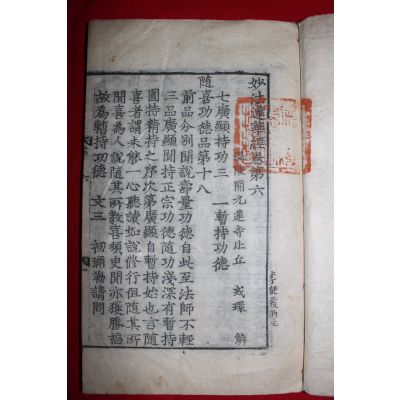 妙法蓮華經卷第六
溫陵開元蓮寺比丘 戒環 解
七廣顯持功三 一暫持功德
隨喜功德品第十八
前品分別聞說壽量功德自此至法師不輕
三品廣顯聞持正宗功德隨功淺深有暫持
圓持精持之序次第廣顯自暫持始也言隨
喜者謂未能一心聽讀如說修行但隨其所
聞喜為人說隨其所教喜須臾聞亦獲勝福
故為暫持功德 文三 初彌勒請問